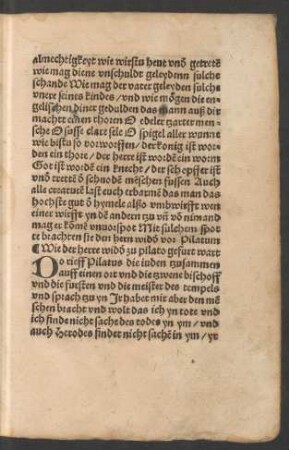 almechtigkeyt wie wirstu heut vnd getretē
wie mag diene vnschulde geleydenn sulche
schande Wie mag der vater geleyden sulche
vnere seines kindes / vnd wie mögen die en
gelischen diner gedulden das man auß dir
machtet einen thoren O edeler tzarter men-
sche O susse clare sele O spigel aller wunne
wie bistu so vorworffen / der konig ist wor-
den ein thore / der herre ist wordē ein worm
Got ist wordē ein knecht / der schepffer ist
vnd tretē d̄ schnodē mēschen fussen Auch
alle creaturē last euch erbarmē das man das
hochste gut d̄ hymele also vmbwirfft wen
einer wirfft yn dē andern zu vn̄ vō nimand
mag er komē vnuorspot Mit sulchem spot
te brachten sie den hern widd̄ vor Pilatum
¶ Wie der herre widd̄ zu pilato gefurt wart
DO rieff Pilatus die iuden zusammen
auff einen ort vnd die zwene bischoff
vnd die fursten vnd die meister des tempels
vnd sprach zu yn Ir habet mir aber den mē
schen bracht vnd wolt das ich yn tote vnd
ich finde nicht sache des todes yn ym / vnd
auch Herodes findet nicht sachē in ym / yr